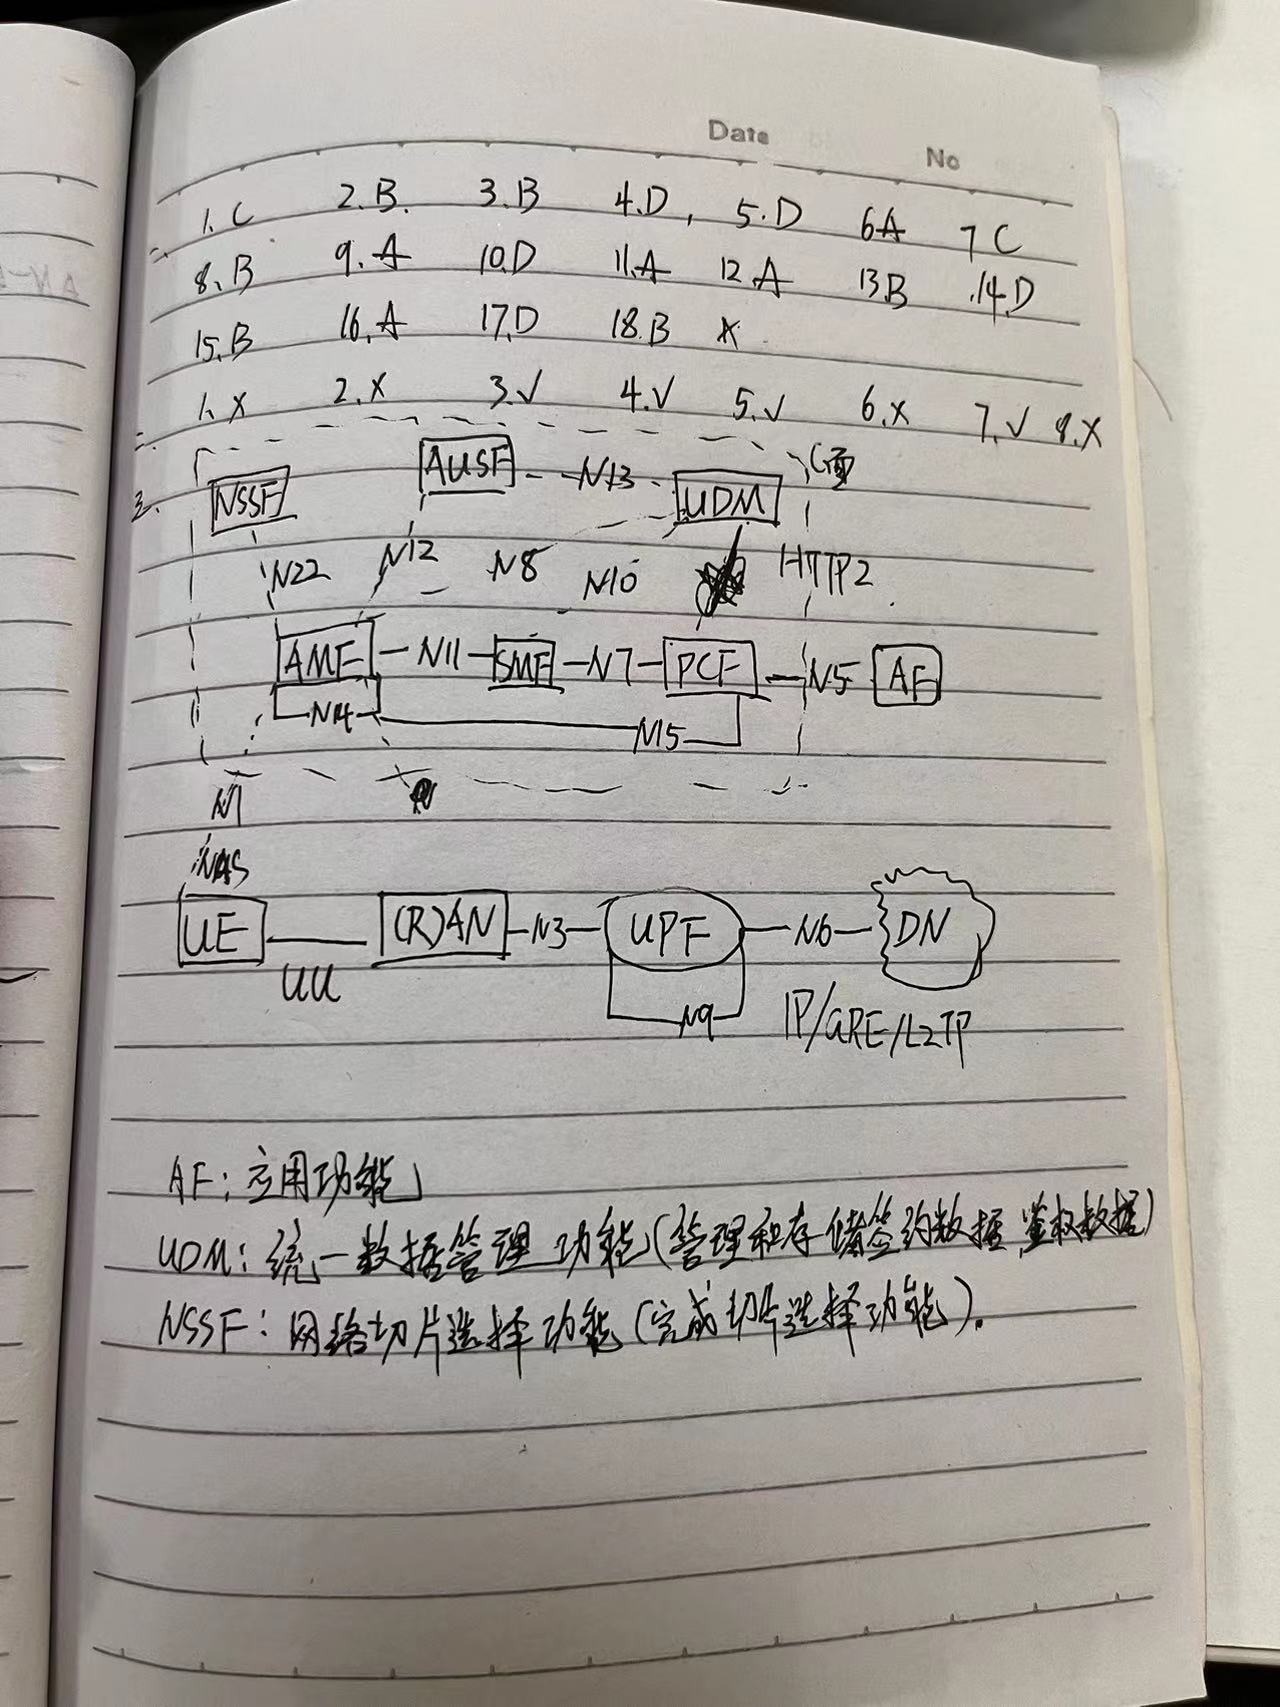 Date
No
一. 1. C 2. B. 3. B 4. D, 5. D 6 A 7 C
8. B 9. A 10. D 11. A 12 A 13 B 14. D
15. B 16. A 17. D 18. B ×
二. 1. × 2. × 3. √ 4. √ 5. √ 6. × 7. √ 8. ×
三.
AUSF N13 UDM C面
NSSF
N22 N12 N8 N10 HTTP2
AMF N11 SMF N7 PCF N5 AF
N14 N15
N1
NAS
UE (R)AN N3 UPF N6 DN
UU N9 IP/GRE/L2TP
AF: 应用功能
UDM: 统一数据管理功能(管理和存储签约数据,鉴权数据)
NSSF: 网络切片选择功能(完成切片选择功能).